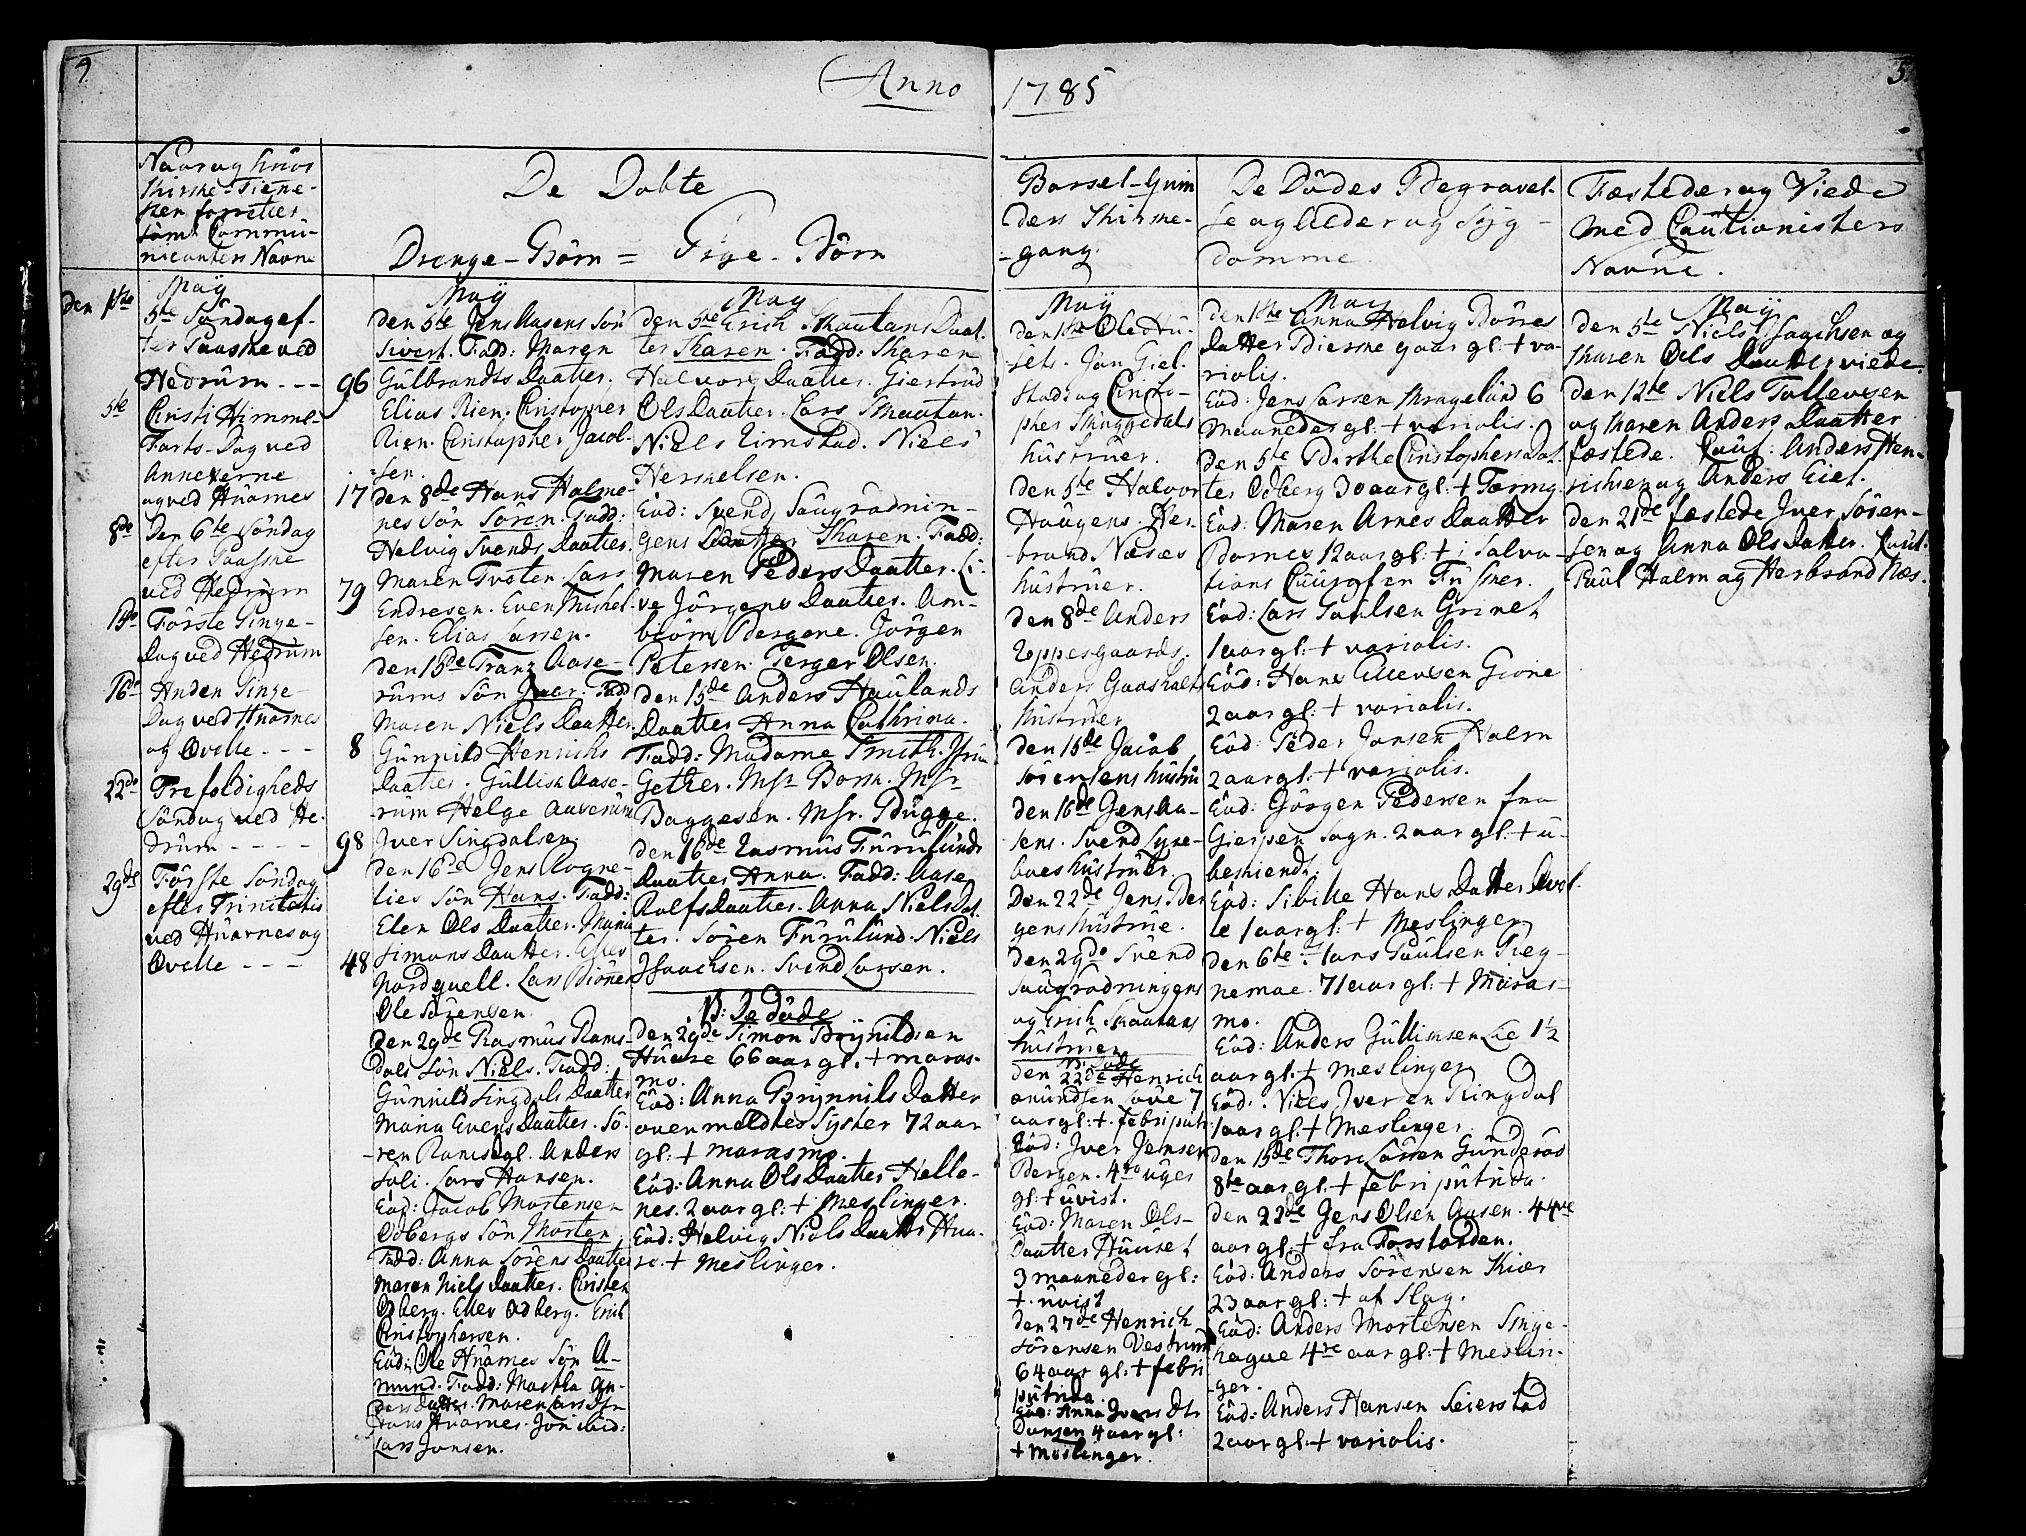 Anno 1785
5
Naar og hvor
Kirke-Tiene-
sten forrettes
samt Commu-
nicanters Navne
De Døbte
Drenge-Børn = Pige-Børn
Barsel-Qvin
ders Kirke-
gang.
De Dödes Begravel-
se og Alder og Syg-
domme.
Fæstede og Viede
med Cautionisters
Navne.
May
den 1ste
5te Söndag ef-
ter Paaske ved
Hedrum - - - 96
5te
Christi Himmel-
Farts-Dag ved
Annexerne
og ved Hvarnes 17
8de Den 6te Söndag
efter Paaske
ved Hedrum 79
15de Förste Pinge-
Dag ved Hedrum
16de Anden Pinge-
Dag ved Hvarnes
og Qvelle - - - 8
22de Trefoldigheds
Söndag ved He-
drum - - - - 98
29de Förste Söndag
efter Trinitatis
ved Hvarnes og
Qvelle - - - 48
May
Den 5te Jens Aasens Sön
Sivert. Fadd: Maren
Gulbrands Daatter.
Elias Rien. Christopher
Rien. Christopher Jacob-
sen.
den 8de Hans Holme-
nes Sön Sören. Fadd:
Helvig Svends Daatter.
Maren Tvsten. Lars
Endresen. Even Michel-
sen. Elias Larsen.
den 15de Franz Aase-
rums Sön Iver. Fadd
Maren Niels Daatter.
Gunnild Henrichs
Daatter. Gullich Aase-
rum Helge Aaserum
Iver Lingdalsen.
den 16de Jens Rogne-
lies Sön Hans. Fadd:
Elen Ols Daatter. Maria
Simons Daatter.
Nordqvell. Lars
Ole Sörensen.
Den 29de Rasmus Rams-
dals Sön Niels. Fadd:
Gunnild Lingdals Daatter
Maria Evens Daatter. Sö-
ren Ramsdal. Anders
Soli. Lars Hansen.
Eod: Jacob Mortensen
Odbergs Sön Morten.
Fadd: Anna Sörens Daatter
Maren Niels Daatter. Christen
Odberg. Ellev Odberg. Erich
Christophersen.
Eod: Ole Hvarnes Sön A-
mund. Fadd: Martha An-
ders Datter. Maren Lars Dtr
Hans Hvarnes. Jon
Lars Jonsen.
May
den 5te Erich Skaatans Daat-
ter Karen. Fadd: Karen
Halvors Daatter. Giertrud
Ols Daatter. Lars Skaatan.
Niels Rimstad. Niels
Herskelsen.
Eod: Svend Saugrödnin-
gens Daatter Karen. Fadd:
Maren Peders Daatter. Li-
ve Jörgens Daatter. Am-
biörn Bergene. Jörgen
Petersen. Terger Olsen.
den 15de Anders Haulands
Daatter Anna Cathrina.
Fadd: Madame Smith. Jfru
Gether. Msr Born. Msr
Baggesen. Msr. Bügge.
den 16de Rasmus Furulunds
Daatter Anna. Fadd: Aase
Rolfs Daatter. Anna Niels Dat-
ter. Sören Furulund. Niels
Isaachsen. Svend Larsen.
NB: De döde
den 29de Simon Brÿnildsen
Huare 66 aar gl. + maras-
mo.
Eod: Anna Brynnils Datter
ovenmeldtes Syster 72 aar
gl: + marasmo.
Eod: Anna Ols Daatter Helle-
nes. 2 aar gl: + Meslinger.
Eod: Helvig Niels Daatter Hua-
re. + Meslinger.
May
den 1ste Ole Hu-
sets. Jon Giel-
stad og Christo-
pher Skinggedals
hustruer.
den 5te Halvor
Haugens. Her-
brand Næses
hustruer.
den 8de Anders
Eppesgaards.
Anders Gaasholts
Hustruer
den 15de Jacob
Sörensens hustru
den 16de Jens Aa-
sens. Svend Lyse-
boes hustruer.
Den 22de Jens Ber
gens hustrue.
den 29de Svend
Saugrödningens
og Erich Skaatans
hustruer
NB: Döde
den 22de Henrich
Amundsen Löve 7
aar gl: + febri putr:
Eod: Iver Jensen
Bergen. 4re uger
gl: + uvist.
Eod: Maren Ols-
Daatter Huuset
3 maaneder gl:
+ uvist
den 27de Henrich
Sörensen Vestrum
64 aar gl: + febri
putrida.
Eod: Anna Ivers Dtr
Dansen 4 aar gl:
+ Meslinger.
May
den 1ste Anna Helvig Börres
Datter Bierke 9 aar gl: + va-
riolis.
Eod: Jens Larsen Kragelund 6
Maaneder gl: + variolis.
den 5te Birthe Christophers Dat-
ter Odberg 30 aar gl: + Tæring.
Eod: Maren Arnes Daatter
Bornes 12 aar gl: + i Salva-
tions Cuur for Fusser.
Eod: Lars Paulsen Grinet
1 aar gl: + variolis.
Eod: Hans Ellevsen Gione
2 aar gl: + variolis.
Eod: Peder Jonsen Holm
2 aar gl: + variolis.
Eod: Jörgen Pedersen fra
Gierpen Sogn. 2 aar gl: + u-
bekiendt.
Eod: Sibille Hans Datter Qvel-
le 1 aar gl: + Meslinger
den 6te Hans Paulsen Preg-
nemoe. 71 aar gl: + Maras-
mo.
Eod: Anders Gullichsen Lie 1½
aar gl: + meslinger
Eod: Niels Iversen Ringdal
1 aar gl: + Meslinger.
den 15de Thore Larsen Gunderöd
8te aar gl: + febri putrida.
den 22de Jens Olsen Aasen. 44re
aar gl: + fra Forstanden.
Eod: Anders Sörensen Kiær
23 aar gl: + af Slag.
Eod: Anders Mortensen Skie-
hague 4re aar gl: + Meslin-
ger.
Eod: Anders Hansen Seierstad
2 aar gl: + variolis.
May
Den 5te Niels Isaachsen og
Karen Ols Daatter viede.
den 12te Niels Tollevsen
og Karen Anders Daatter
fæstede. Caut: Anders Hen-
richsen og Anders Eiet.
den 21de fæstede Iver Sören-
sen og Anna Ols Datter. Caut:
Paul Holm og Herbrand Næs.